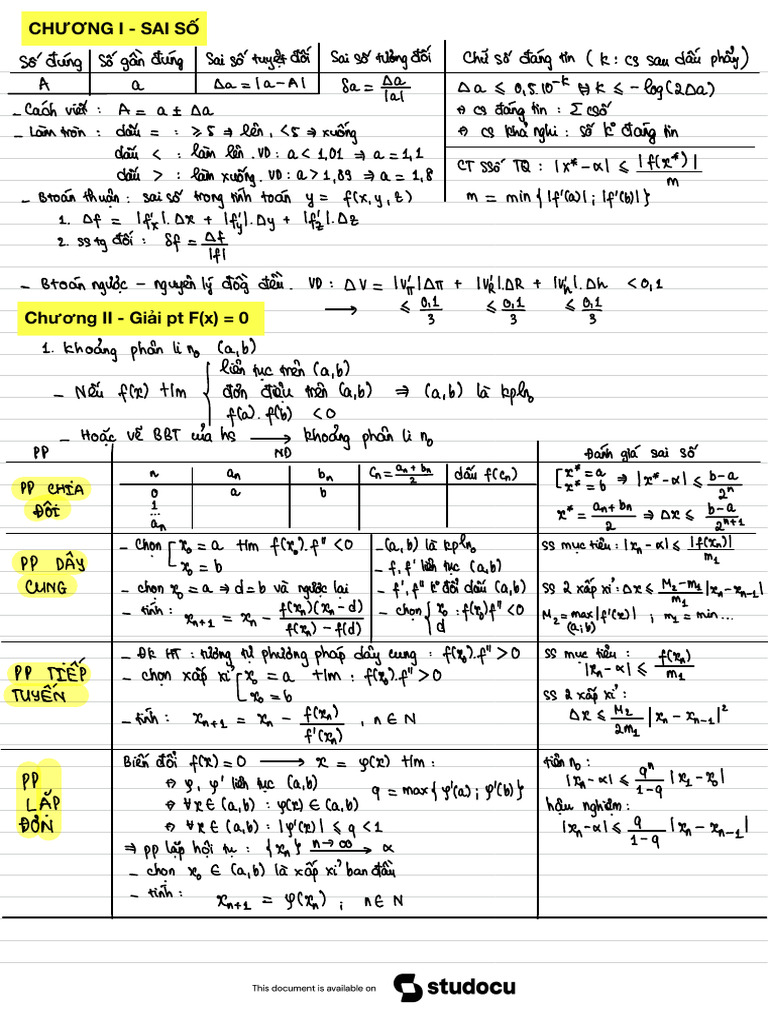 CHƯƠNG I - SAI SỐ
Số đúng | Số gần đúng | Sai số tuyệt đối | Sai số tương đối | Chữ số đáng tin (k: cs sau dấu phẩy)
A | a | Δa = |a - A| | δa = Δa/|a| | Δa ⩽ 0,5.10^-k ⇔ k ⩽ -log(2Δa)
- Cách viết : A = a ± Δa
⇨ cs đáng tin : Σ csố
- Làm tròn : dấu = : ⩾ 5 ⇒ lên, < 5 ⇒ xuống
⇨ cs khả nghi : số k° đáng tin
dấu < : làm lên. VD: a < 1,01 ⇒ a = 1,1
dấu > : làm xuống. VD: a > 1,89 ⇒ a = 1,8
CT SSố TQ : |x* - α| ⩽ |f(x*)|/m
m = min{|f'(a)|; |f'(b)|}
- Btoán thuận : sai số trong tính toán y = f(x, y, z)
1. Δf = |f'x|.Δx + |f'y|.Δy + |f'z|.Δz
2. ss tg đối : δf = Δf/|f|
- Btoán ngược - nguyên lý đồng đều. VD : ΔV = |V'π|Δπ + |V'R|ΔR + |V'h|Δh < 0,1
⟶ ⩽ 0,1/3 ⩽ 0,1/3 ⩽ 0,1/3
Chương II - Giải pt F(x) = 0
1. Khoảng phân li n₀ (a,b)
- Nếu f(x) t/m { liên tục trên (a,b)
đơn điệu trên (a,b) ⇒ (a,b) là kpln₀
f(a).f(b) < 0
- Hoặc vẽ BBT của hs ⟶ khoảng phân li n₀
PP | ND | Đánh giá sai số
PP CHIA ĐÔI
n | an | bn | Cn = (an + bn)/2 | dấu f(cn)
0 | a | b
1
...
an
[ x* = a
x* = b ⇒ |x* - α| ⩽ (b-a)/2^n
x* = (an + bn)/2 ⇒ Δx ⩽ (b-a)/2^(n+1)
PP DÂY CUNG
- Chọn [ x₀ = a t/m f(x₀).f'' < 0
x₀ = b
- chọn x₀ = a ⇒ d = b và ngược lại
- tính : x_(n+1) = xn - f(xn)(xn - d)/(f(xn) - f(d))
- (a,b) là kpln₀
- f, f' liên tục (a,b)
- f', f'' k° đổi dấu (a,b)
- chọn { x₀ : f(x₀)f'' < 0
d
SS mục tiêu : |xn - α| ⩽ |f(xn)|/m₁
SS 2 xấp xỉ : Δx ⩽ (M₂ - m₁)/m₁ |xn - x_(n-1)|
M₂ = max|f'(x)| (a;b) ; m₁ = min...
PP TIẾP TUYẾN
- Đk HT : tương tự phương pháp dây cung : f(x₀).f'' > 0
- chọn xấp xỉ [ x₀ = a t/m : f(x₀).f'' > 0
x₀ = b
- tính : x_(n+1) = xn - f(xn)/f'(xn) , n ∈ N
SS mục tiêu :
|xn - α| ⩽ f(xn)/m₁
SS 2 xấp xỉ :
Δx ⩽ M₂/2m₁ |xn - x_(n-1)|²
PP LẶP ĐƠN
Biến đổi f(x) = 0 ⟶ x = φ(x) t/m :
⇨ φ, φ' liên tục (a,b)
⇨ ∀x ∈ (a,b) : φ(x) ∈ (a,b)
q = max{φ'(a); φ'(b)}
⇨ ∀x ∈ (a,b) : |φ'(x)| ⩽ q < 1
⇒ pp lặp hội tụ : {xn} n→∞ ⟶ α
- chọn x₀ ∈ (a,b) là xấp xỉ ban đầu
- tính :
x_(n+1) = φ(xn) ; n ∈ N
tiền n₀ :
|xn - α| ⩽ q^n/(1-q) |x₁ - x₀|
hậu nghiệm :
|xn - α| ⩽ q/(1-q) |xn - x_(n-1)|
This document is available on
studocu